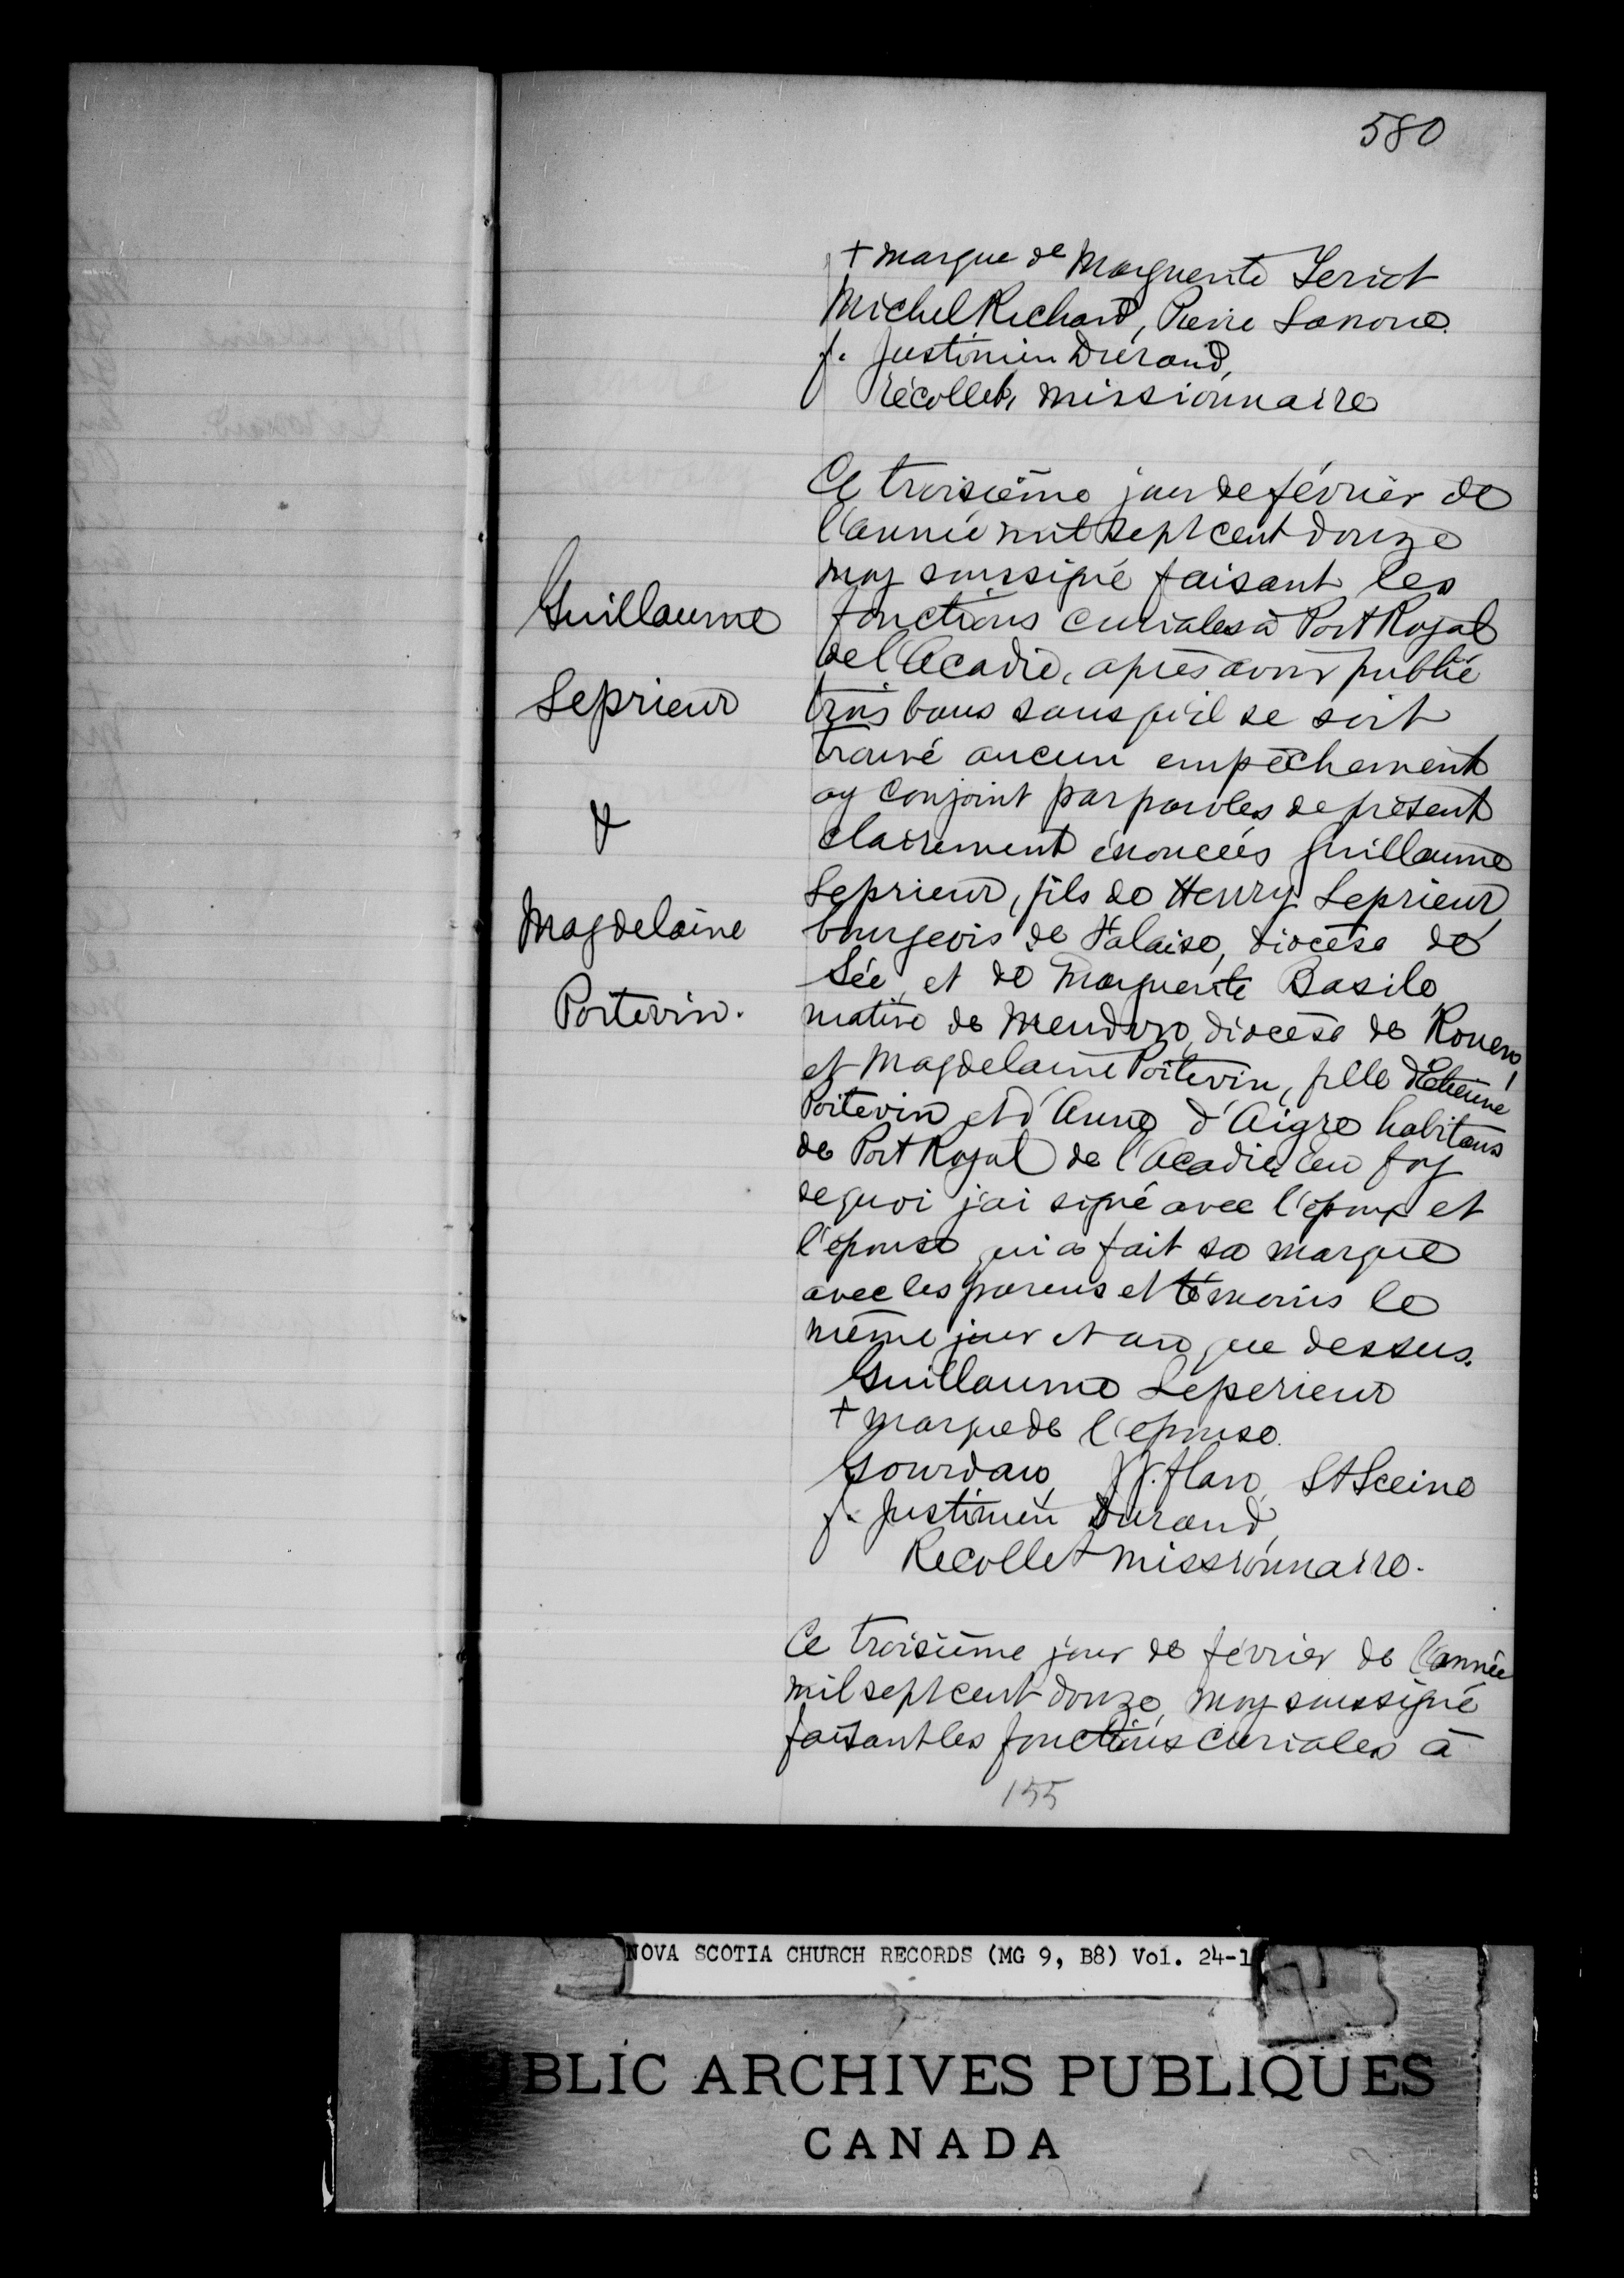 580
+ marque de Marguerite Leriot
Michel Richard, Pierre Lanoue.
f. Justinien Durand,
récollet, missionnaire
Ce troisième jour de février de
l'année mil sept cent douze
moy soussigné faisant les
fonctions curiales à Port Royal
de l'Acadie, après avoir publié
trois bans sans qu'il se soit
trouvé aucun empêchement
ay conjoint par paroles de présent
clairement énoncées Guillaume
Leprieur, fils de Henry Leprieur,
bourgeois de Falaise, diocèse de
Sée, et de Marguerite Basile
native de diocèse de Rouen,
et Magdelaine Poitevin, fille d'Etienne
Poitevin et d'Anne d'Aigre habitans
de Port Royal de l'Acadie, en foy
de quoi j'ai signé avec l'époux et
l'épouse qui a fait sa marque
avec les parens et témoins le
même jour et an que dessus.
Guillaume Leperieur
+ marque de l'épouse.
Gourdan, St Sceine
f. Justinien Durand,
Recollet missionnaire.
Guillaume
Leprieur
&
Magdelaine
Poitevin.
Ce troisième jour de février de l'année
mil sept cent douze, moy soussigné
faisant les fonctions curiales à
155
NOVA SCOTIA CHURCH RECORDS (MG 9, B8) Vol. 24-1
BLIC ARCHIVES PUBLIQUES
CANADA